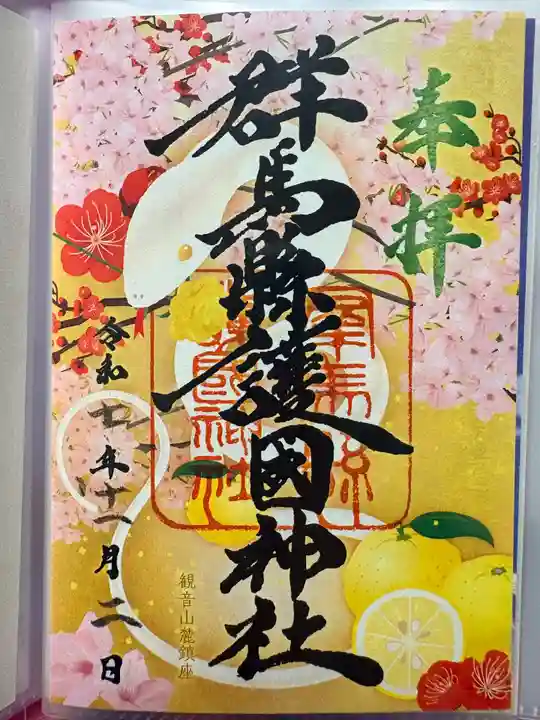 奉拝
群馬縣護國神社
群馬縣
護國神社
観音山麓鎮座
令和七年十一月二日